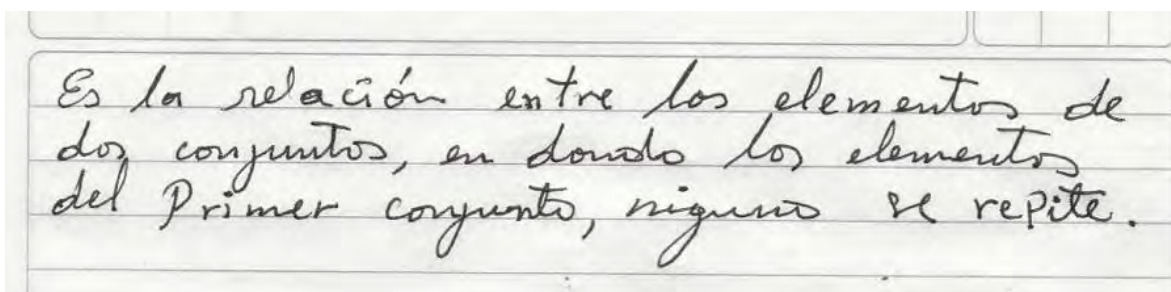 Es la relación entre los elementos de
dos conjuntos, en donde los elementos
del Primer conjunto, niguno se repite.